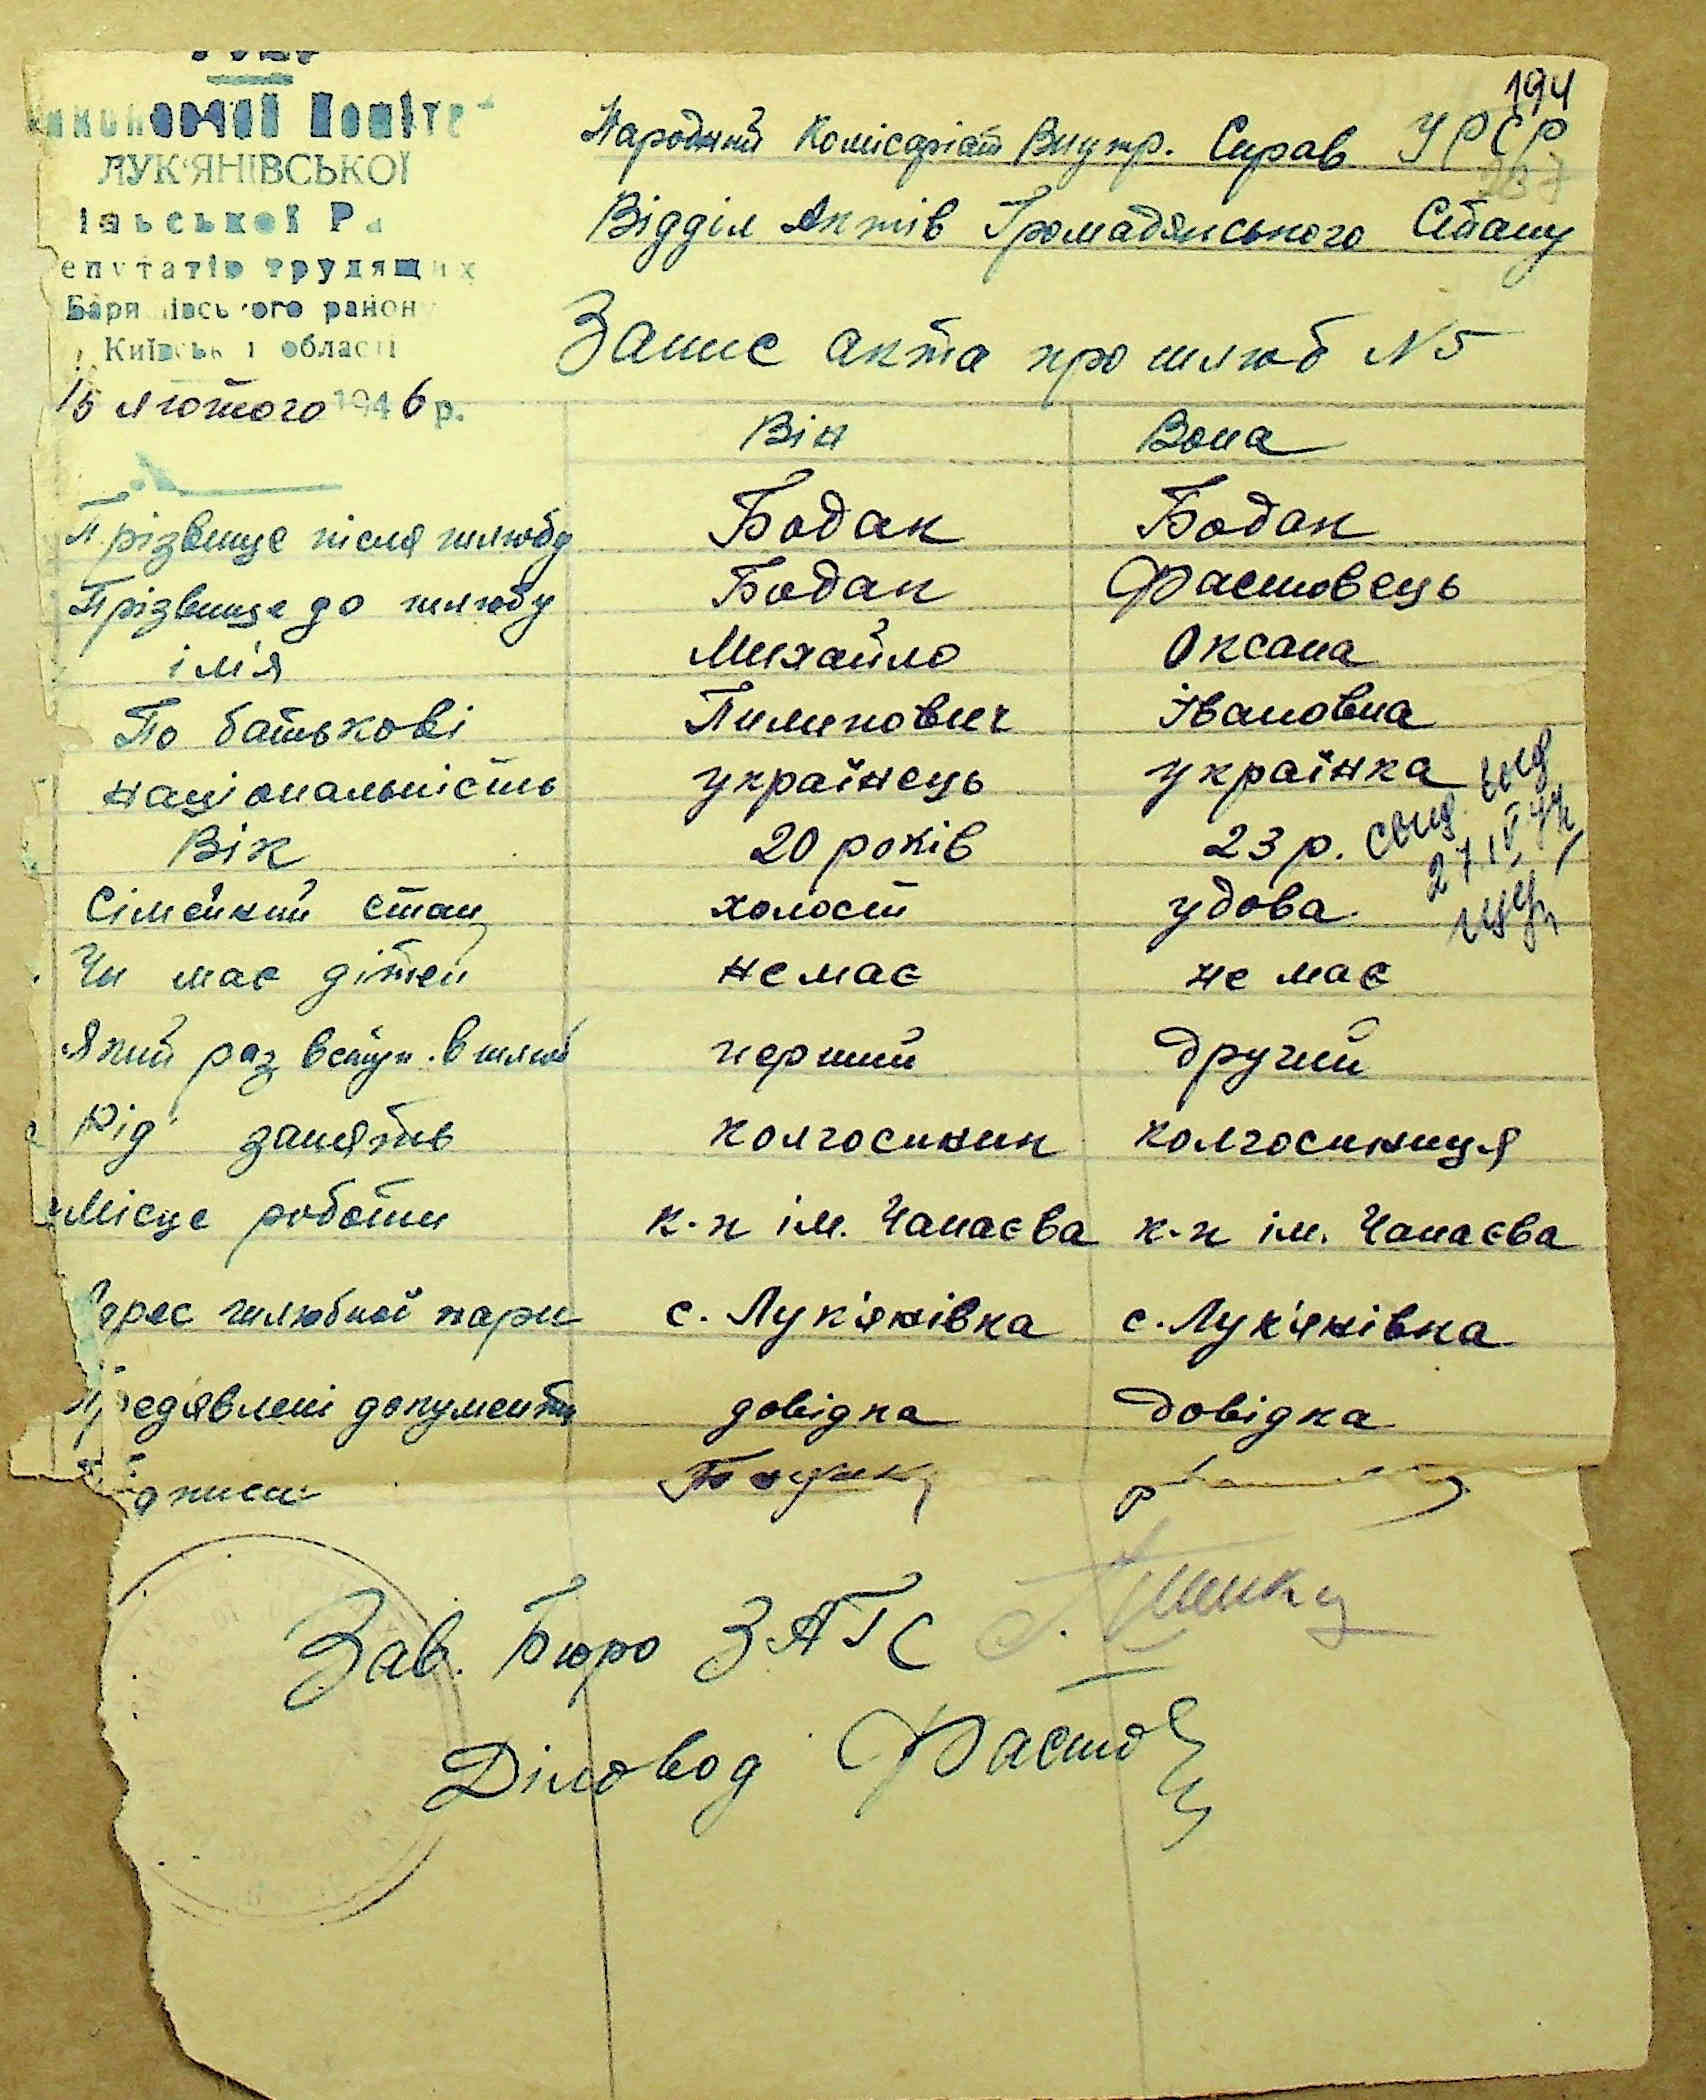 194
Виконавчий Комітет
ЛУК'ЯНІВСЬКОЇ
Сільської Ра
депутатів трудящих
Баришівського району
Київської області
15 лютого 1946 р.
Народний Комісаріат Внутр. Справ УРСР
Відділ Актів Громадянського Стану
Запис акта про шлюб №5
Він Вона
Прізвище після шлюбу Бодак Бодак
Прізвище до шлюбу Бодак Фастовець
ім'я Михайло Оксана
По батькові Пименович Івановна
національність українець українка
Вік 20 років 23 р.
Сімейний стан холост удова
Чи має дітей не має не має
Який раз вступ. в шлюб перший другий
Рід занять колгоспник колгоспниця
Місце роботи к-п ім. Чапаєва к-п ім. Чапаєва
Адрес шлюбної пари с. Лук'янівка с. Лук'янівка
Предявлені документи довідка довідка
Підписи Бодак
Зав. Бюро ЗАГС
Діловод Фастов